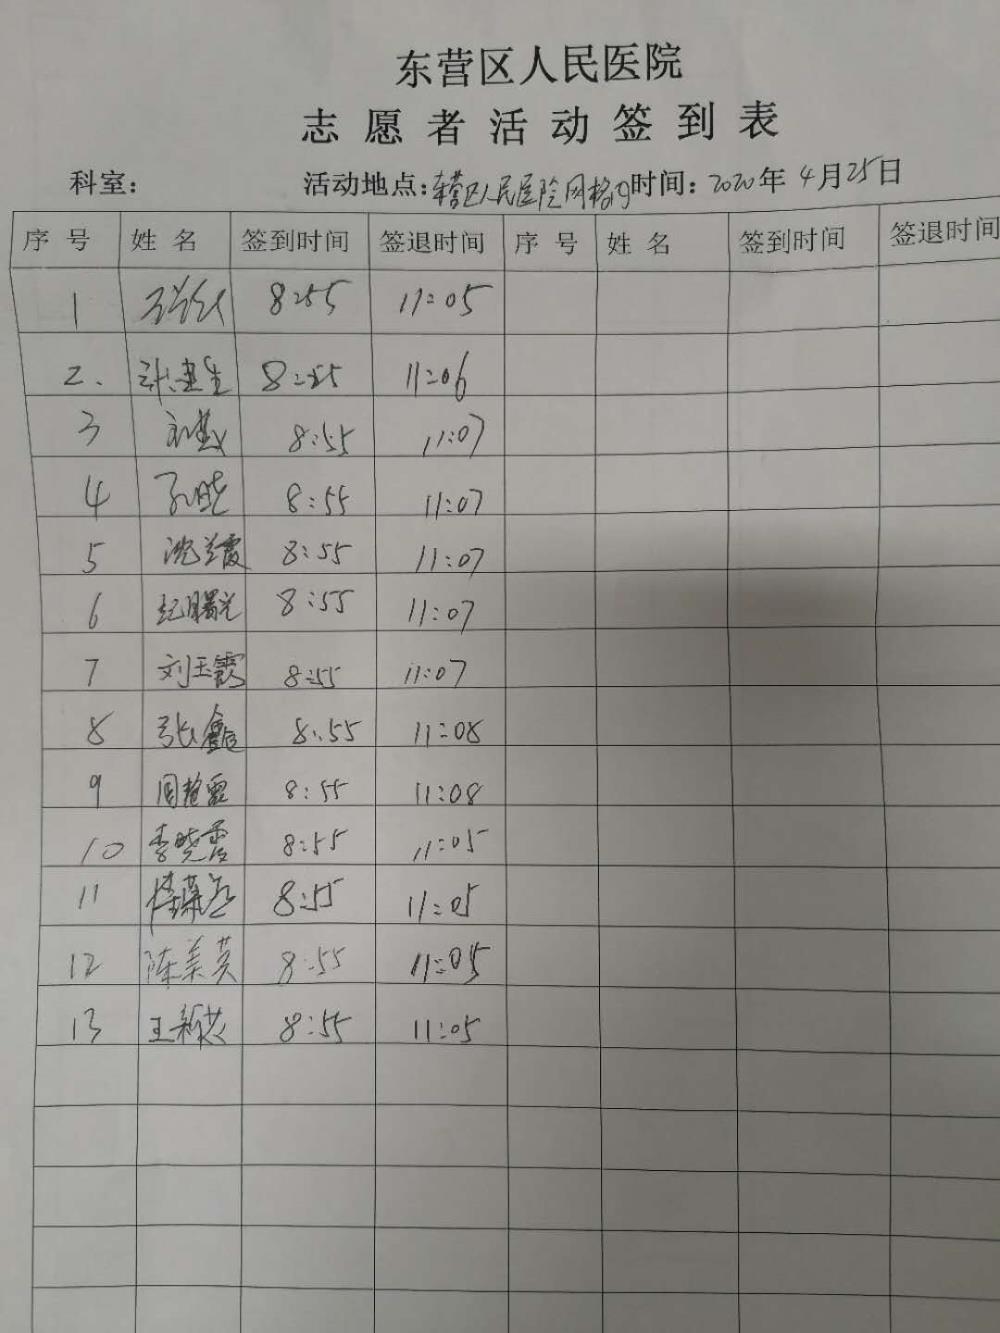 东营区人民医院
志愿者活动签到表
科室： 活动地点：东营区人民医院网格内 时间：2020年4月25日
序号 姓名 签到时间 签退时间 序号 姓名 签到时间 签退时间
1 8:55 11:05
2. 8:55 11:06
3 8:55 11:07
4 孔晓 8:55 11:07
5 沈兰霞 8:55 11:07
6 纪曙光 8:55 11:07
7 刘玉霞 8:55 11:07
8 张鑫 8:55 11:08
9 周艳霞 8:55 11:08
10 李晓雪 8:55 11:05
11 8:55 11:05
12 陈美英 8:55 11:05
13 王新芸 8:55 11:05